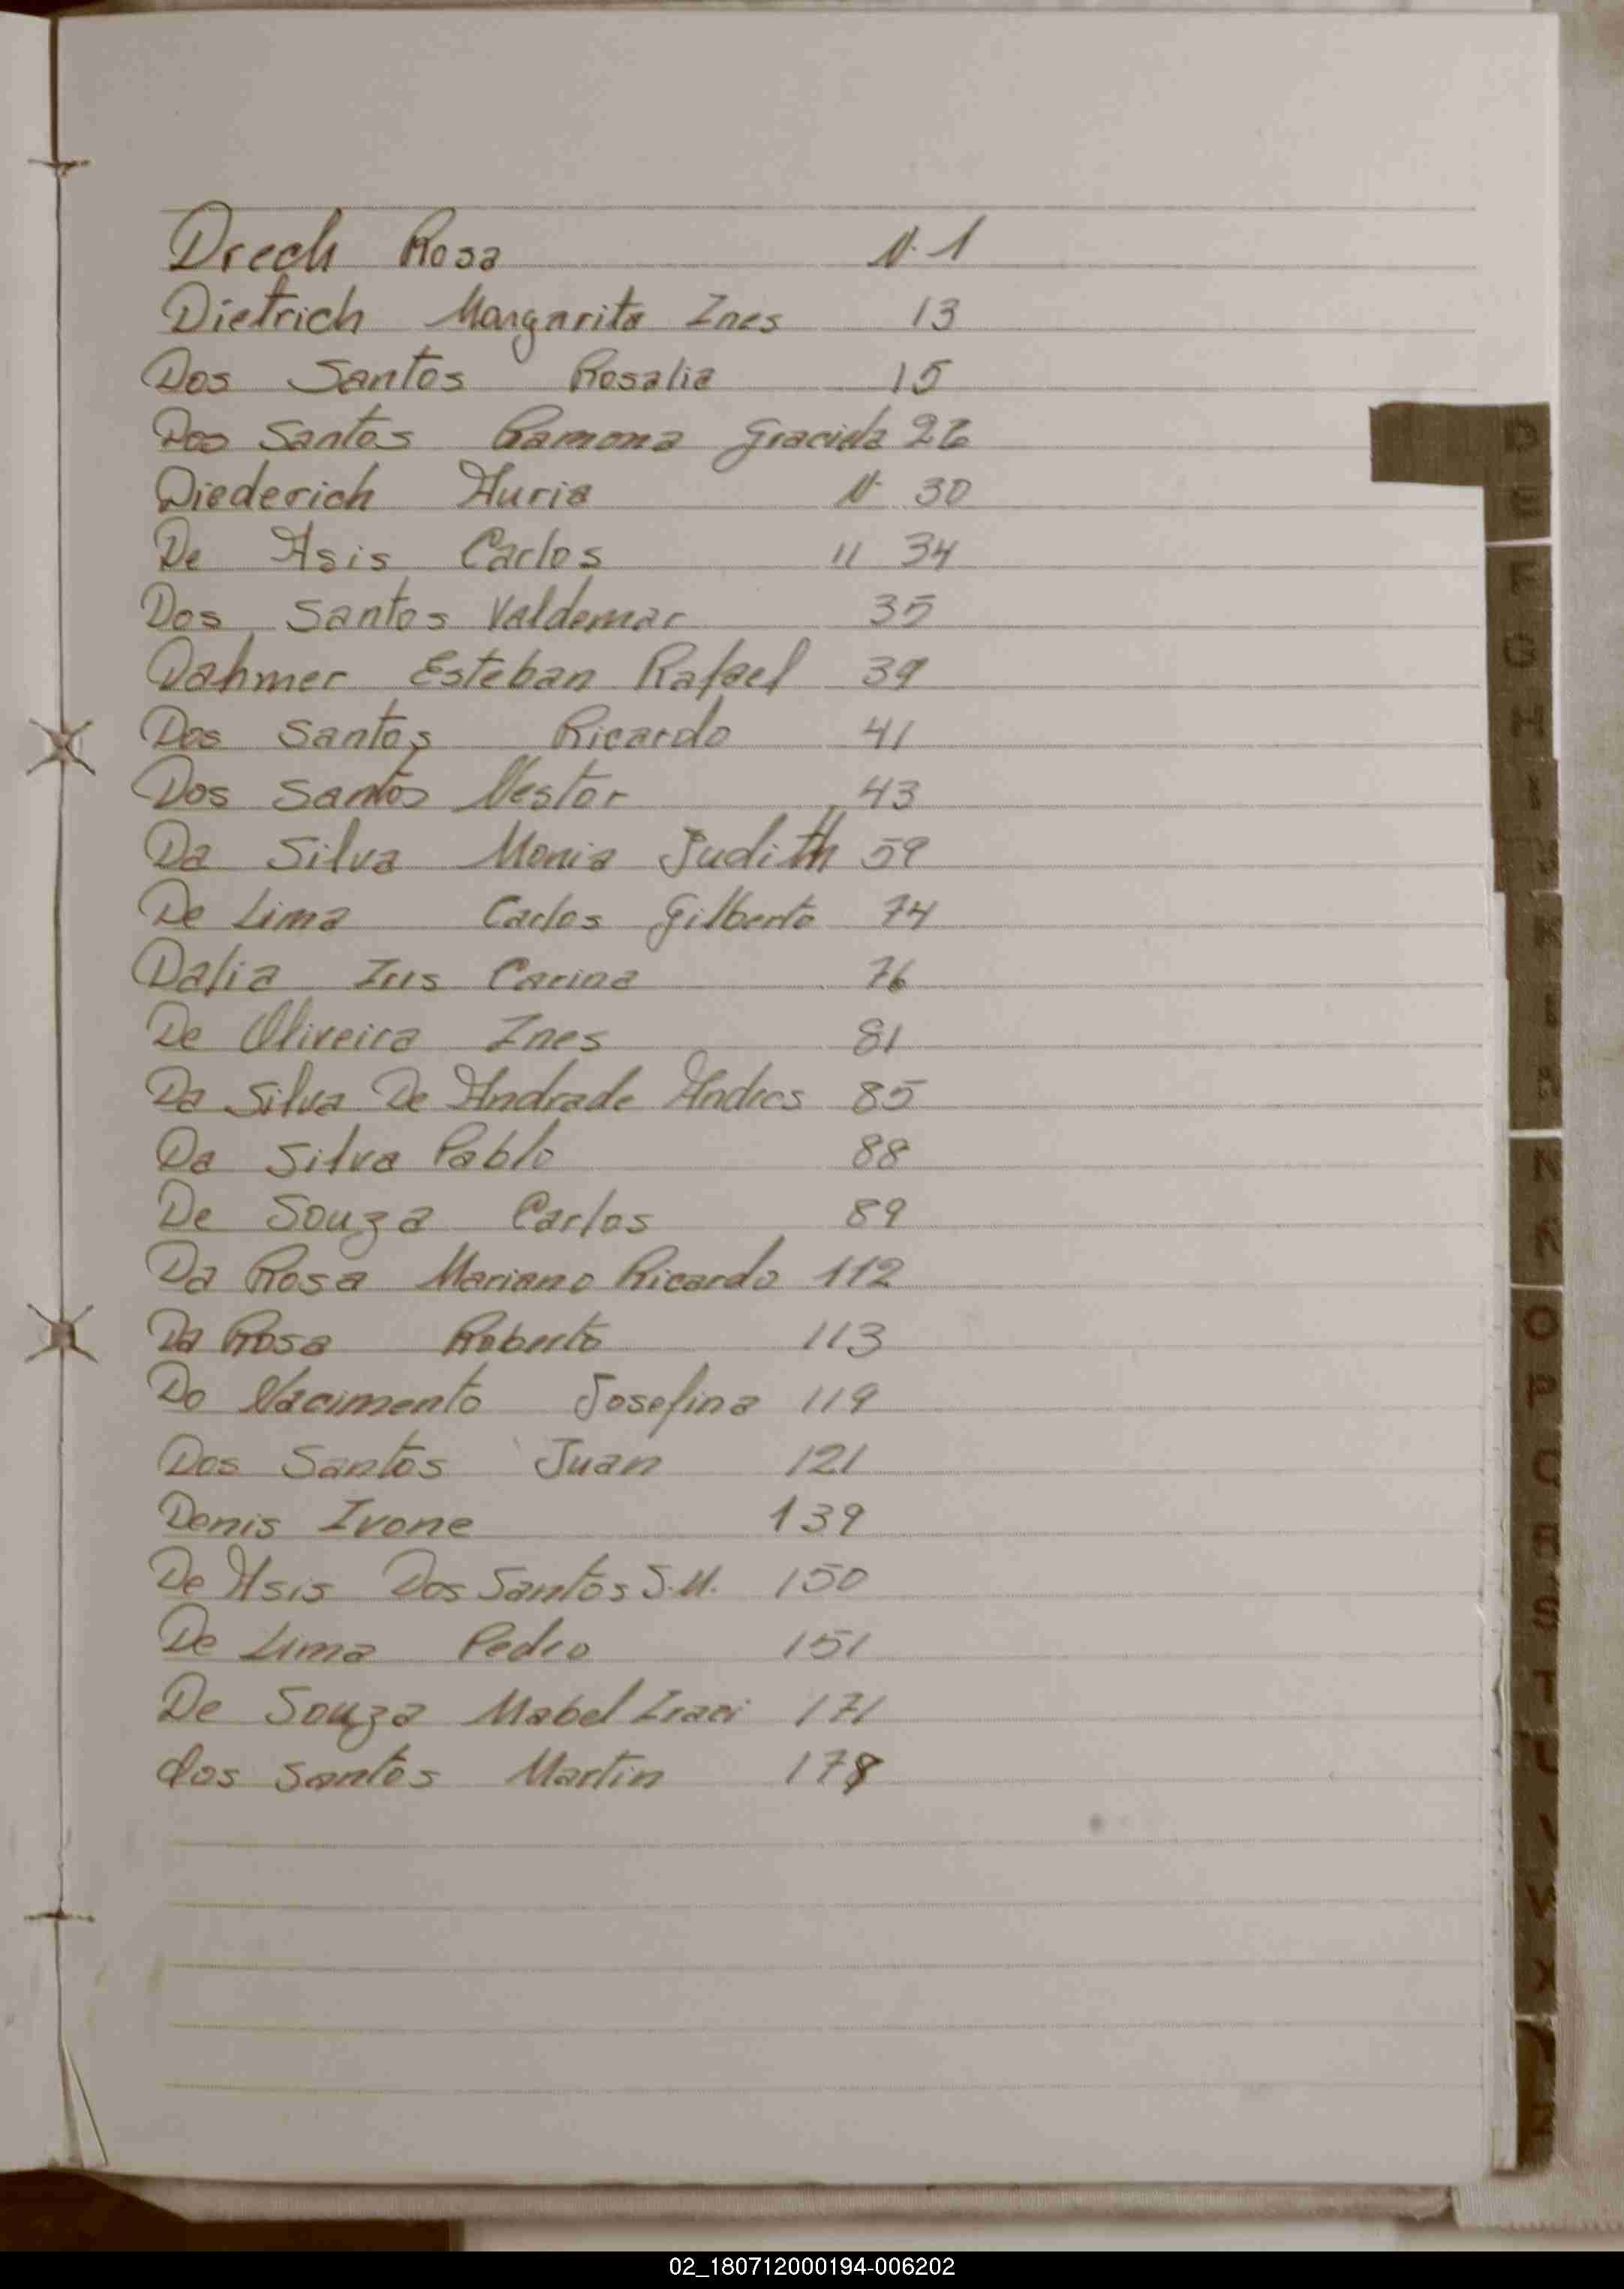 Drech Rosa N. 1
Dietrich Margarita Ines 13
Dos Santos Rosalia 15
Dos Santos Ramona Graciela 26
Diederich Auria N. 30
De Asis Carlos 11 34
Dos Santos Valdemar 35
Dahmer Esteban Rafael 39
Dos Santos Ricardo 41
Dos Santos Nestor 43
Da Silva Monia Judith 59
De Lima Carlos Gilberto 74
Dalia Carina 76
De Oliveira Ines 81
Da Silva De Andrade Andres 85
Da Silva Pablo 88
De Souza Carlos 89
Da Rosa Mariano Ricardo 112
Da Rosa Roberto 113
Do Nacimento Josefina 119
Dos Santos Juan 121
Denis Ivone 139
De Asis Dos Santos S.M. 150
De Lima Pedro 151
De Souza Mabel Iraci 171
dos Santos Martin 178
D
E
F
G
H
I
J
K
L
N
O
P
R
S
T
U
V
W
X
Z
02_180712000194-006202